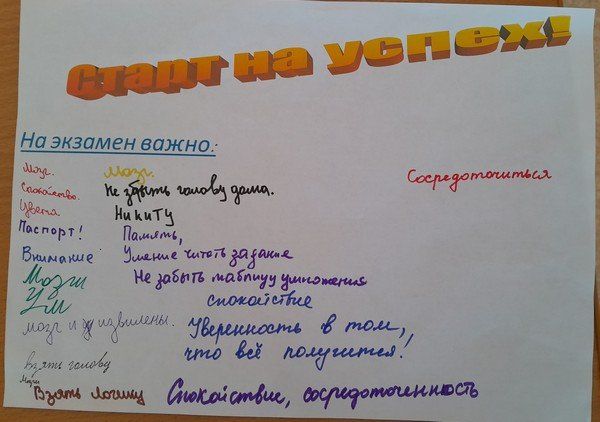 Старт на успех!
На экзамен важно:
Мозг. Мозг.
Сосредоточиться
Спокойство. Не збыть голову дома.
Цвета НикиТУ
Паспорт! Память,
Внимание Умение читать задание
Мозги Не забыть таблицу умножения
Ум спокойствие
мозг и извилены. Уверенность в том,
что всё получится!
взять голову
Мозги
Взять логику Спокойствие, сосредоточенность